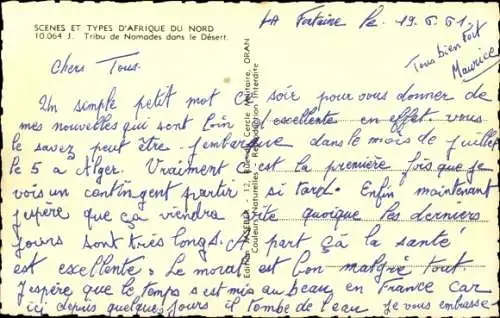 SCENES ET TYPES D'AFRIQUE DU NORD
10.064 J. Tribu de Nomades dans le Désert.
LA Fontaine le 19.6.61.
Tous bien fort
Maurice
Chers Tous.
Un simple petit mot ce soir pour vous donner de
mes nouvelles qui sont loin d'excellente en effet. vous
le savez peut être j'embarque dans le mois de juillet
le 5 a Alger. Vraiment c'est la première fois que je
vois un contingent partir si tard. Enfin maintenant
j'espère que ça viendra vite quoique les derniers
jours sont très longs. A part çà la santé
est excellente. Le moral est bon malgré tout.
J'espère que le temps s'est mis au beau en France car
ici depuis quelques jours il tombe de l'eau je vous embrasse
Edition 12, Rue Cercle Militaire, ORAN
Couleurs Naturelles - Reproduction Interdite